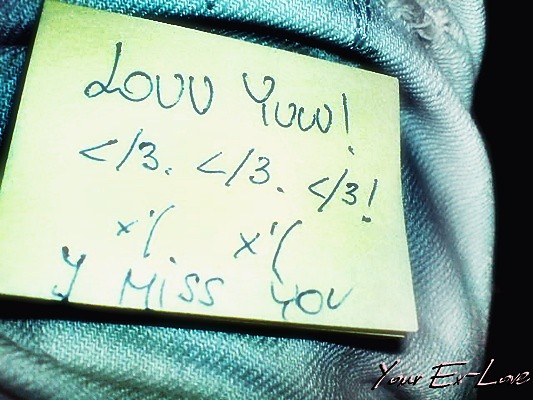 Louu Yuuu!
</3. </3. </3!
x'( x'(
I Miss YOU
Your Ex-Love